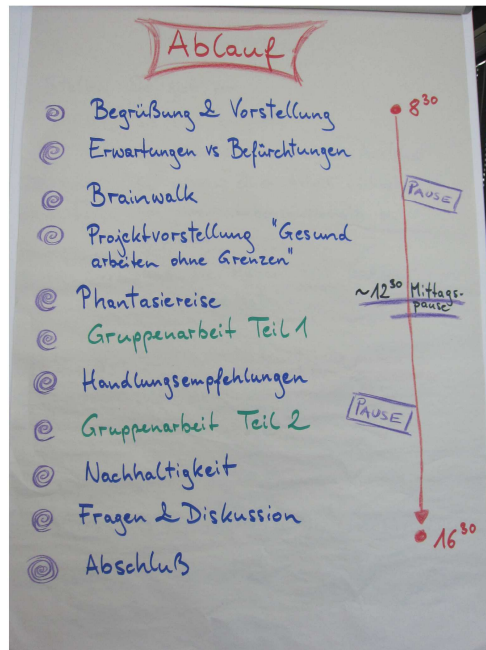 Ablauf
Begrüßung & Vorstellung
Erwartungen vs Befürchtungen
Brainwalk
Projektvorstellung "Gesund
arbeiten ohne Grenzen"
Phantasiereise
Gruppenarbeit Teil 1
Handlungsempfehlungen
Gruppenarbeit Teil 2
Nachhaltigkeit
Fragen & Diskussion
Abschluß
8³⁰
PAUSE
~12³⁰ Mittags-
pause
PAUSE
16³⁰